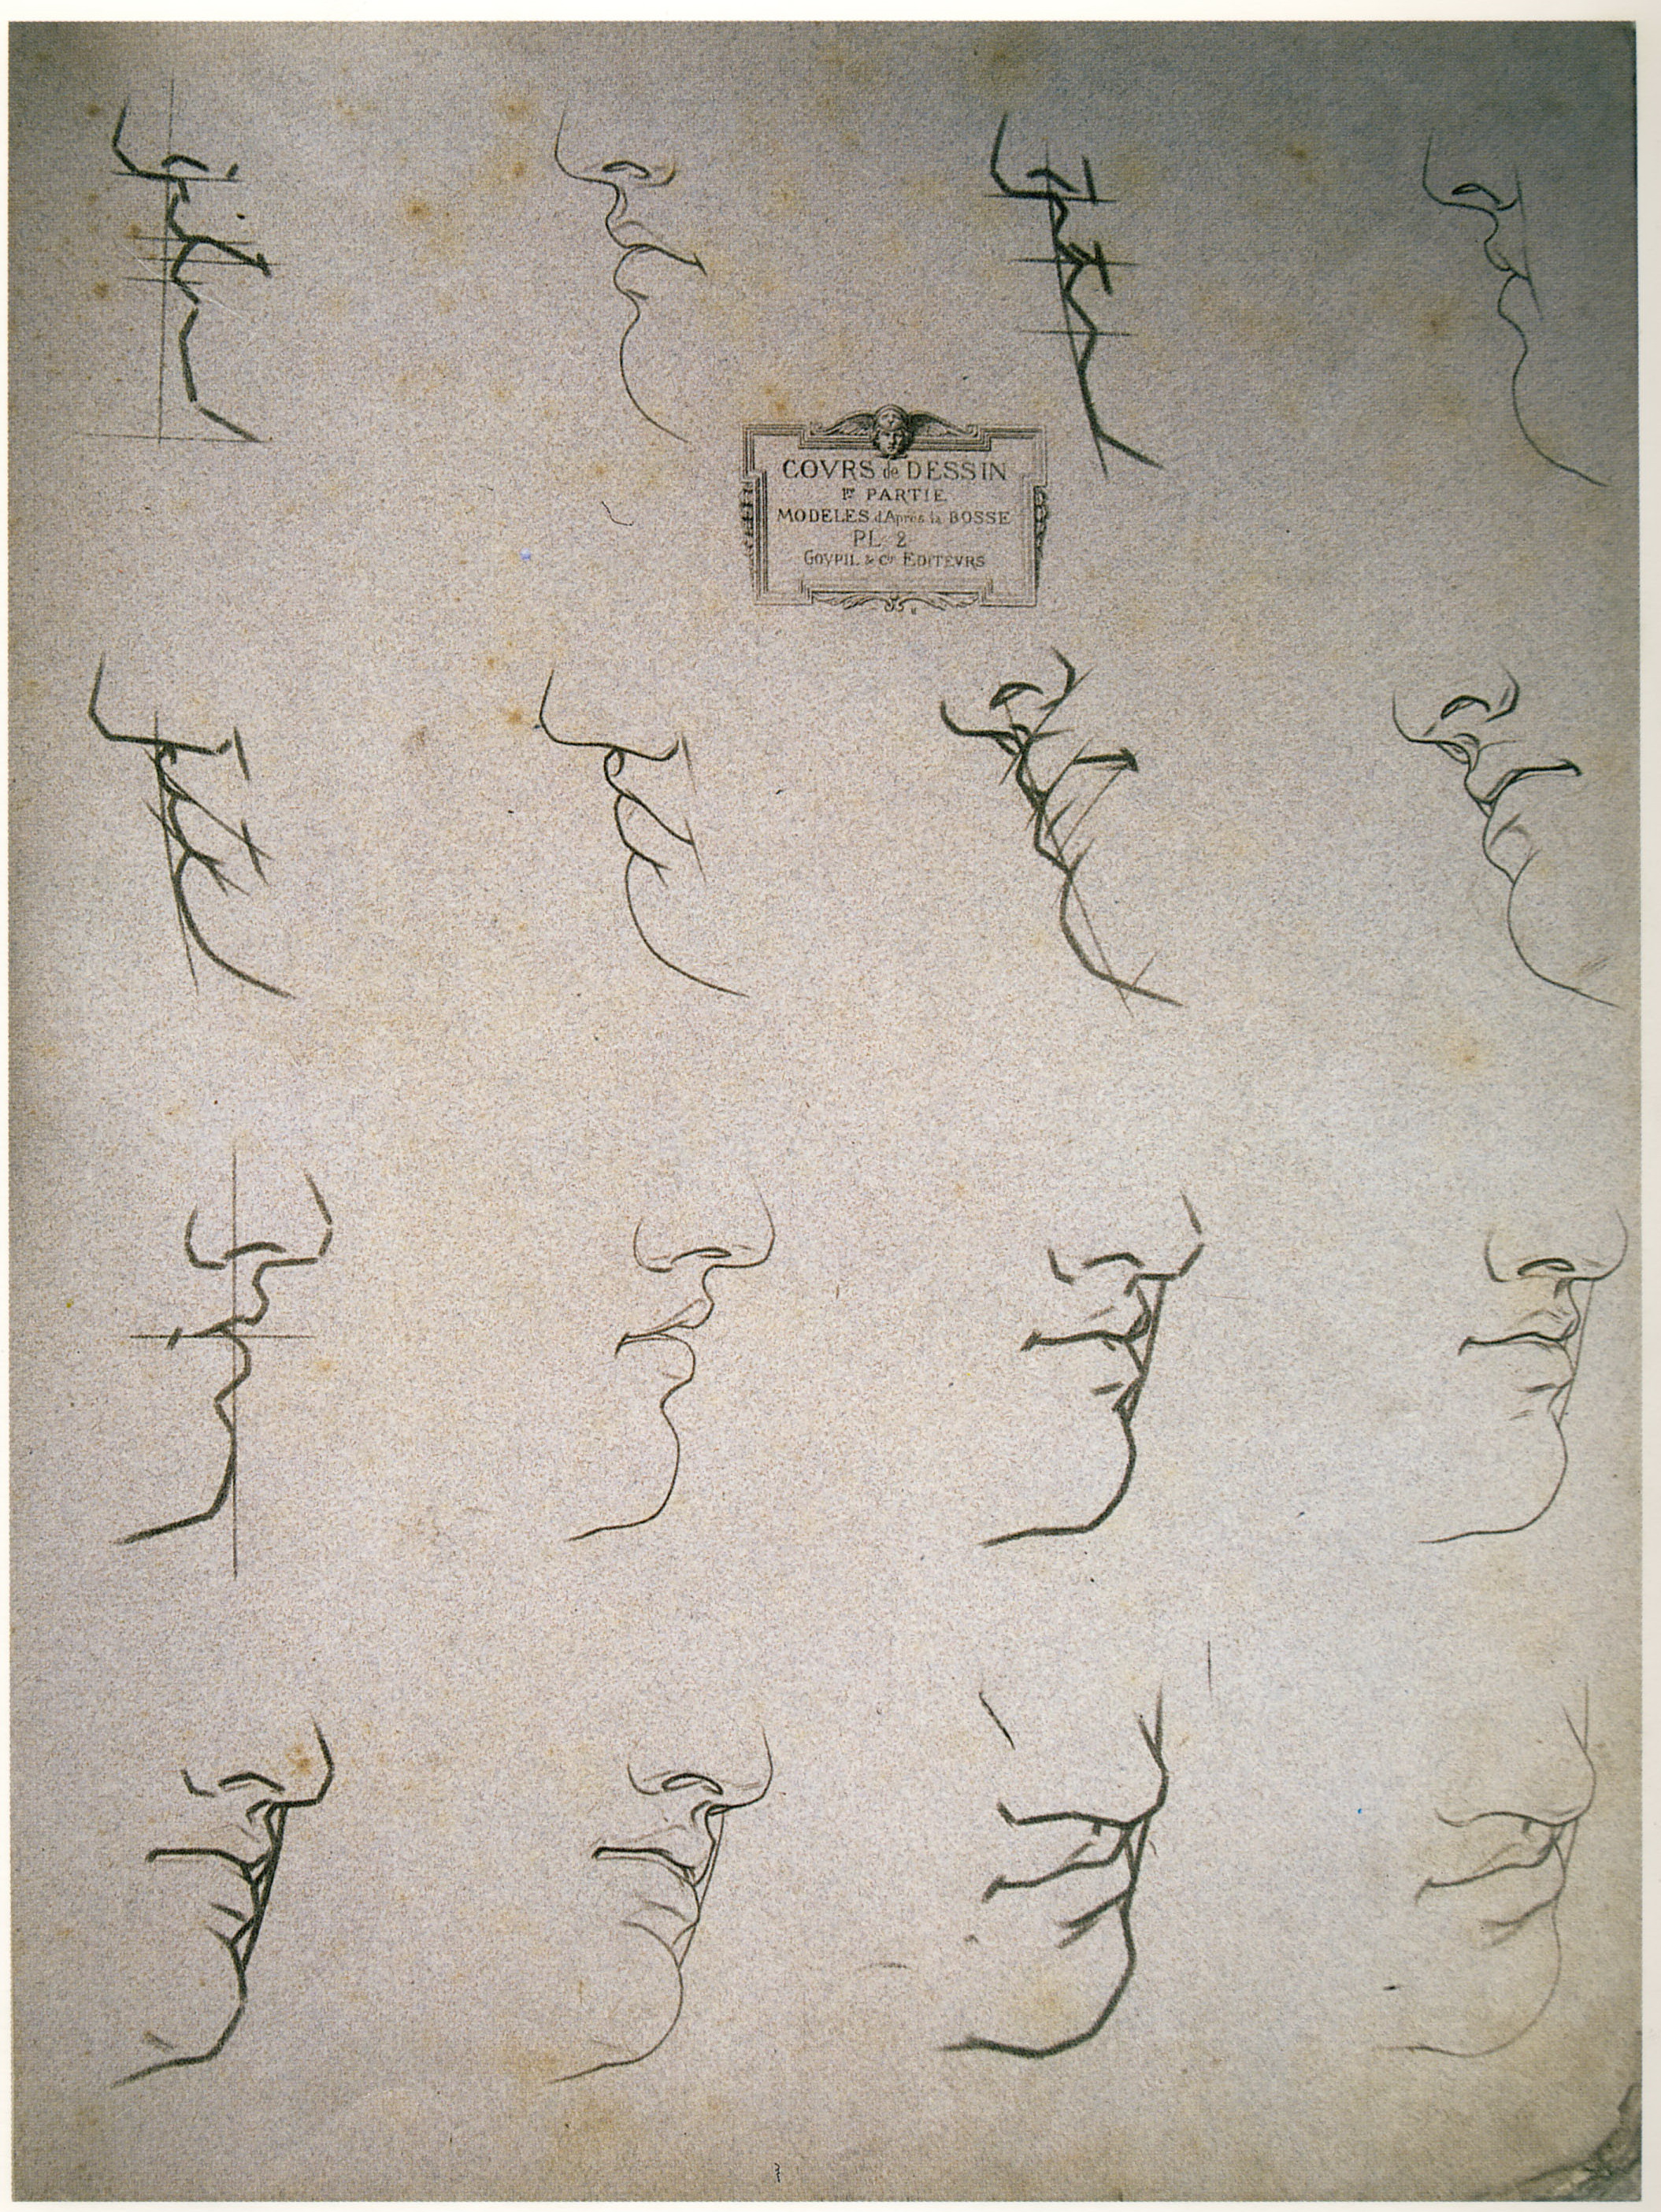 COVRS de DESSIN
1re PARTIE
MODELES d'Après la BOSSE
PL. 2
GOVPIL & Cie EDITEVRS